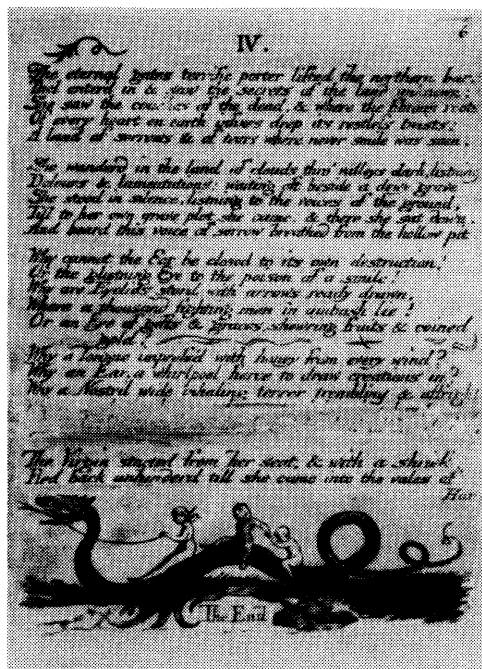 6
IV.
The eternal gates terrific porter lifted the northern bar:
Thel enter'd in & saw the secrets of the land unknown;
She saw the couches of the dead, & where the fibrous roots
Of every heart on earth infixes deep its restless twists:
A land of sorrows & of tears where never smile was seen.
She wanderd in the land of clouds thro' valleys dark, listning
Dolours & lamentations: waiting oft beside a dewy grave
She stood in silence. listning to the voices of the ground,
Till to her own grave plot she came, & there she sat down.
And heard this voice of sorrow breathed from the hollow pit.
Why cannot the Ear be closed to its own destruction?
Or the glistning Eye to the poison of a smile!
Why are Eyelids stord with arrows ready drawn,
Where a thousand fighting men in ambush lie?
Or an Eye of gifts & graces, show'ring fruits & coined
gold!
Why a Tongue impress'd with honey from every wind?
Why an Ear, a whirlpool fierce to draw creations in?
Why a Nostril wide inhaling terror trembling & affright
The Virgin started from her seat, & with a shriek.
Fled back unhinderd till she came into the vales of
Har
The End